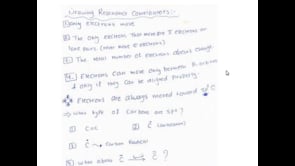 Drawing Resonance Contributors:-
① only electrons move
② The only electrons that move are π electrons or
lone pairs (never move σ electrons)
③ The total number of electrons doesn't change.
④ Electrons can move only between P orbitals
& only if they can be aligned properly.
Electrons are always moved toward sp² C
⇒ what type of carbons are sp²?
① C=C
②
③ Carbon Radical
④ what about